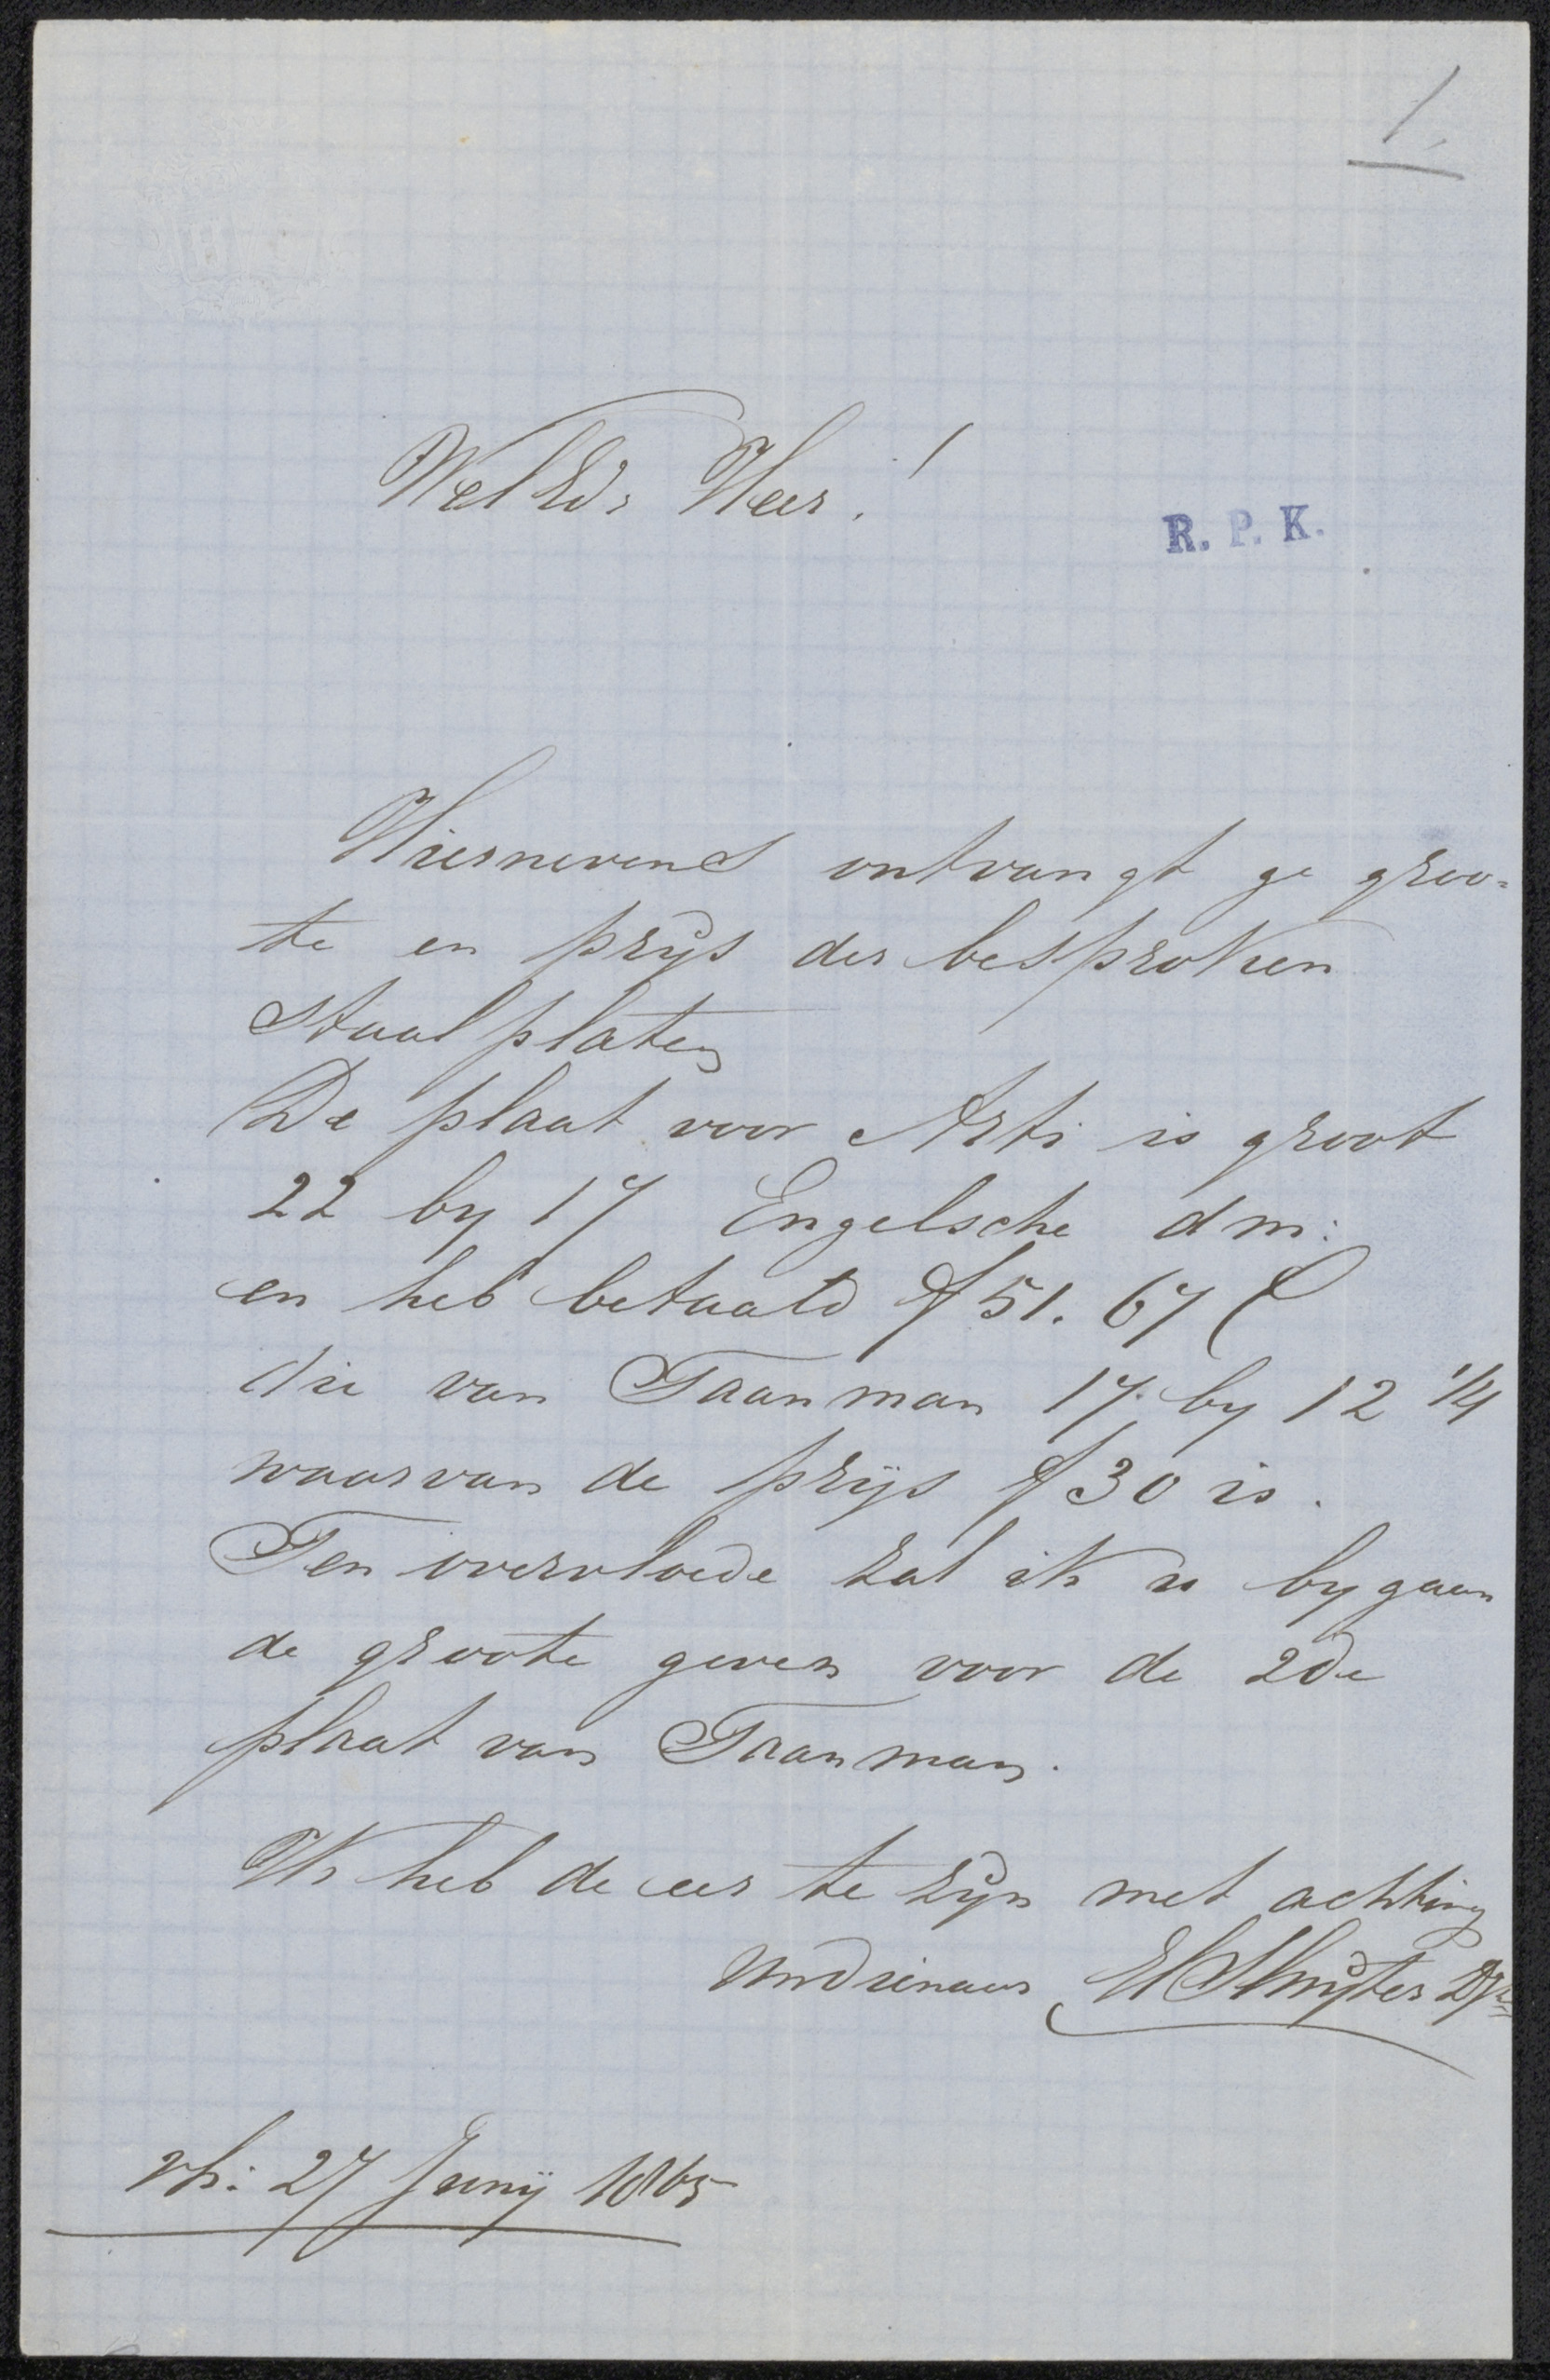 1.
WelEdr Heer!
R. P. K.
Hiernevend ontvangt ge groo-
te en prijs der besproken
Staalplaten
De plaat voor Arti is groot
22 by 17 Engelsche dm:
en heb betaald f 51.67 C
die van Taanman 17 by 12 1/4
waarvan de prijs f 30 is.
Ten overvloede zal ik u bygaan
de groote geven voor de 2de
plaat van Taanman.
Ik heb de eer te zijn met achting
Uwdienaar Sluyter
27 Junij 1865